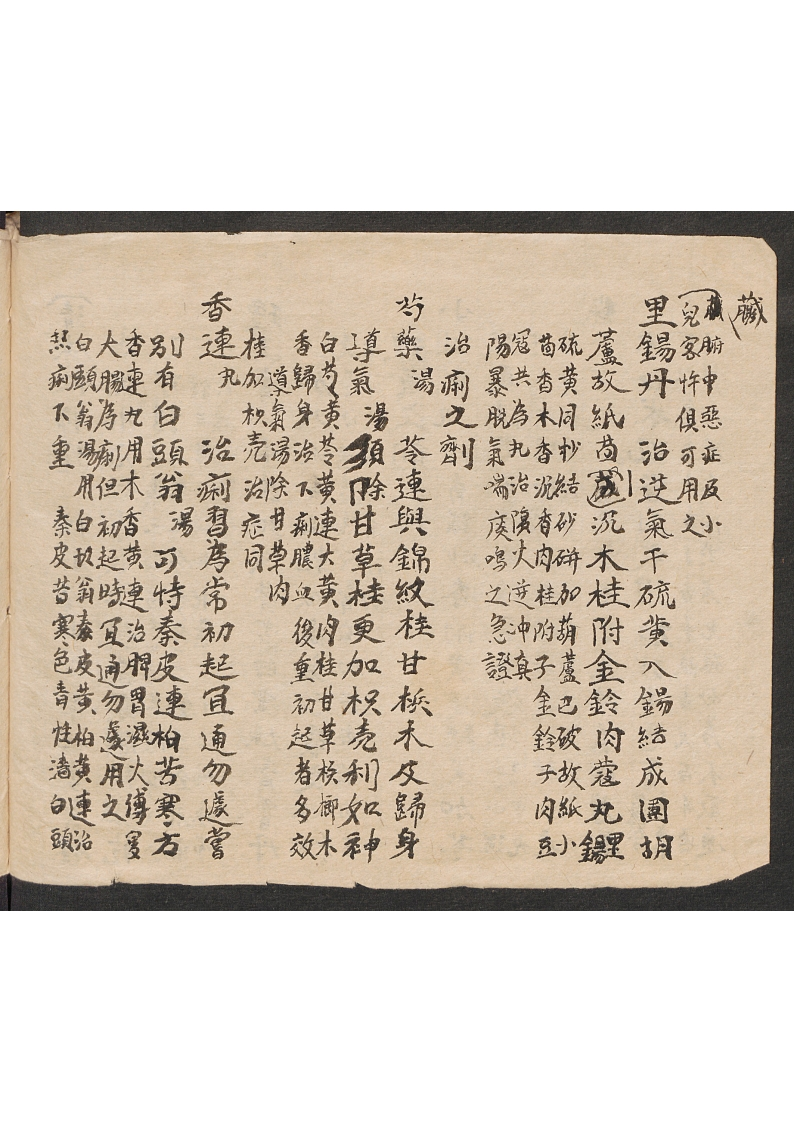 臟
臟腑中惡症及小
兒客忤俱可用之
里鍚丹 治逆氣干硫黃入鍚結成團胡
蘆故紙茴沉木桂附金鈴肉蔻丸黑鍚
硫黃同杪結砂研加葫蘆巴破故紙小
茴香木香沉香肉桂附子金鈴子肉豆
冦共為丸治陰火逆冲真
陽暴脱氣喘痰鳴之急證
治痢之劑
芍藥湯 芩連與錦紋桂甘梹木及歸身
導氣湯須除甘草桂更加枳壳利如神
白芍黄芩黄連大黄肉桂甘草梹榔木
香歸身治下痢膿血後重初起者多效
導氣湯除甘草肉
桂加枳壳治症同
香連丸 治痢習為常初起宜通勿遽嘗
別有白頭翁湯可恃秦皮連柏苦寒方
香連丸用木香黄連治脾胃濕火
大腸為痢但初起時宜通勿遽用之
白頭翁湯用白頭翁秦皮黄柏黄連治
熱痢下重 秦皮苦寒色青性濇白頭